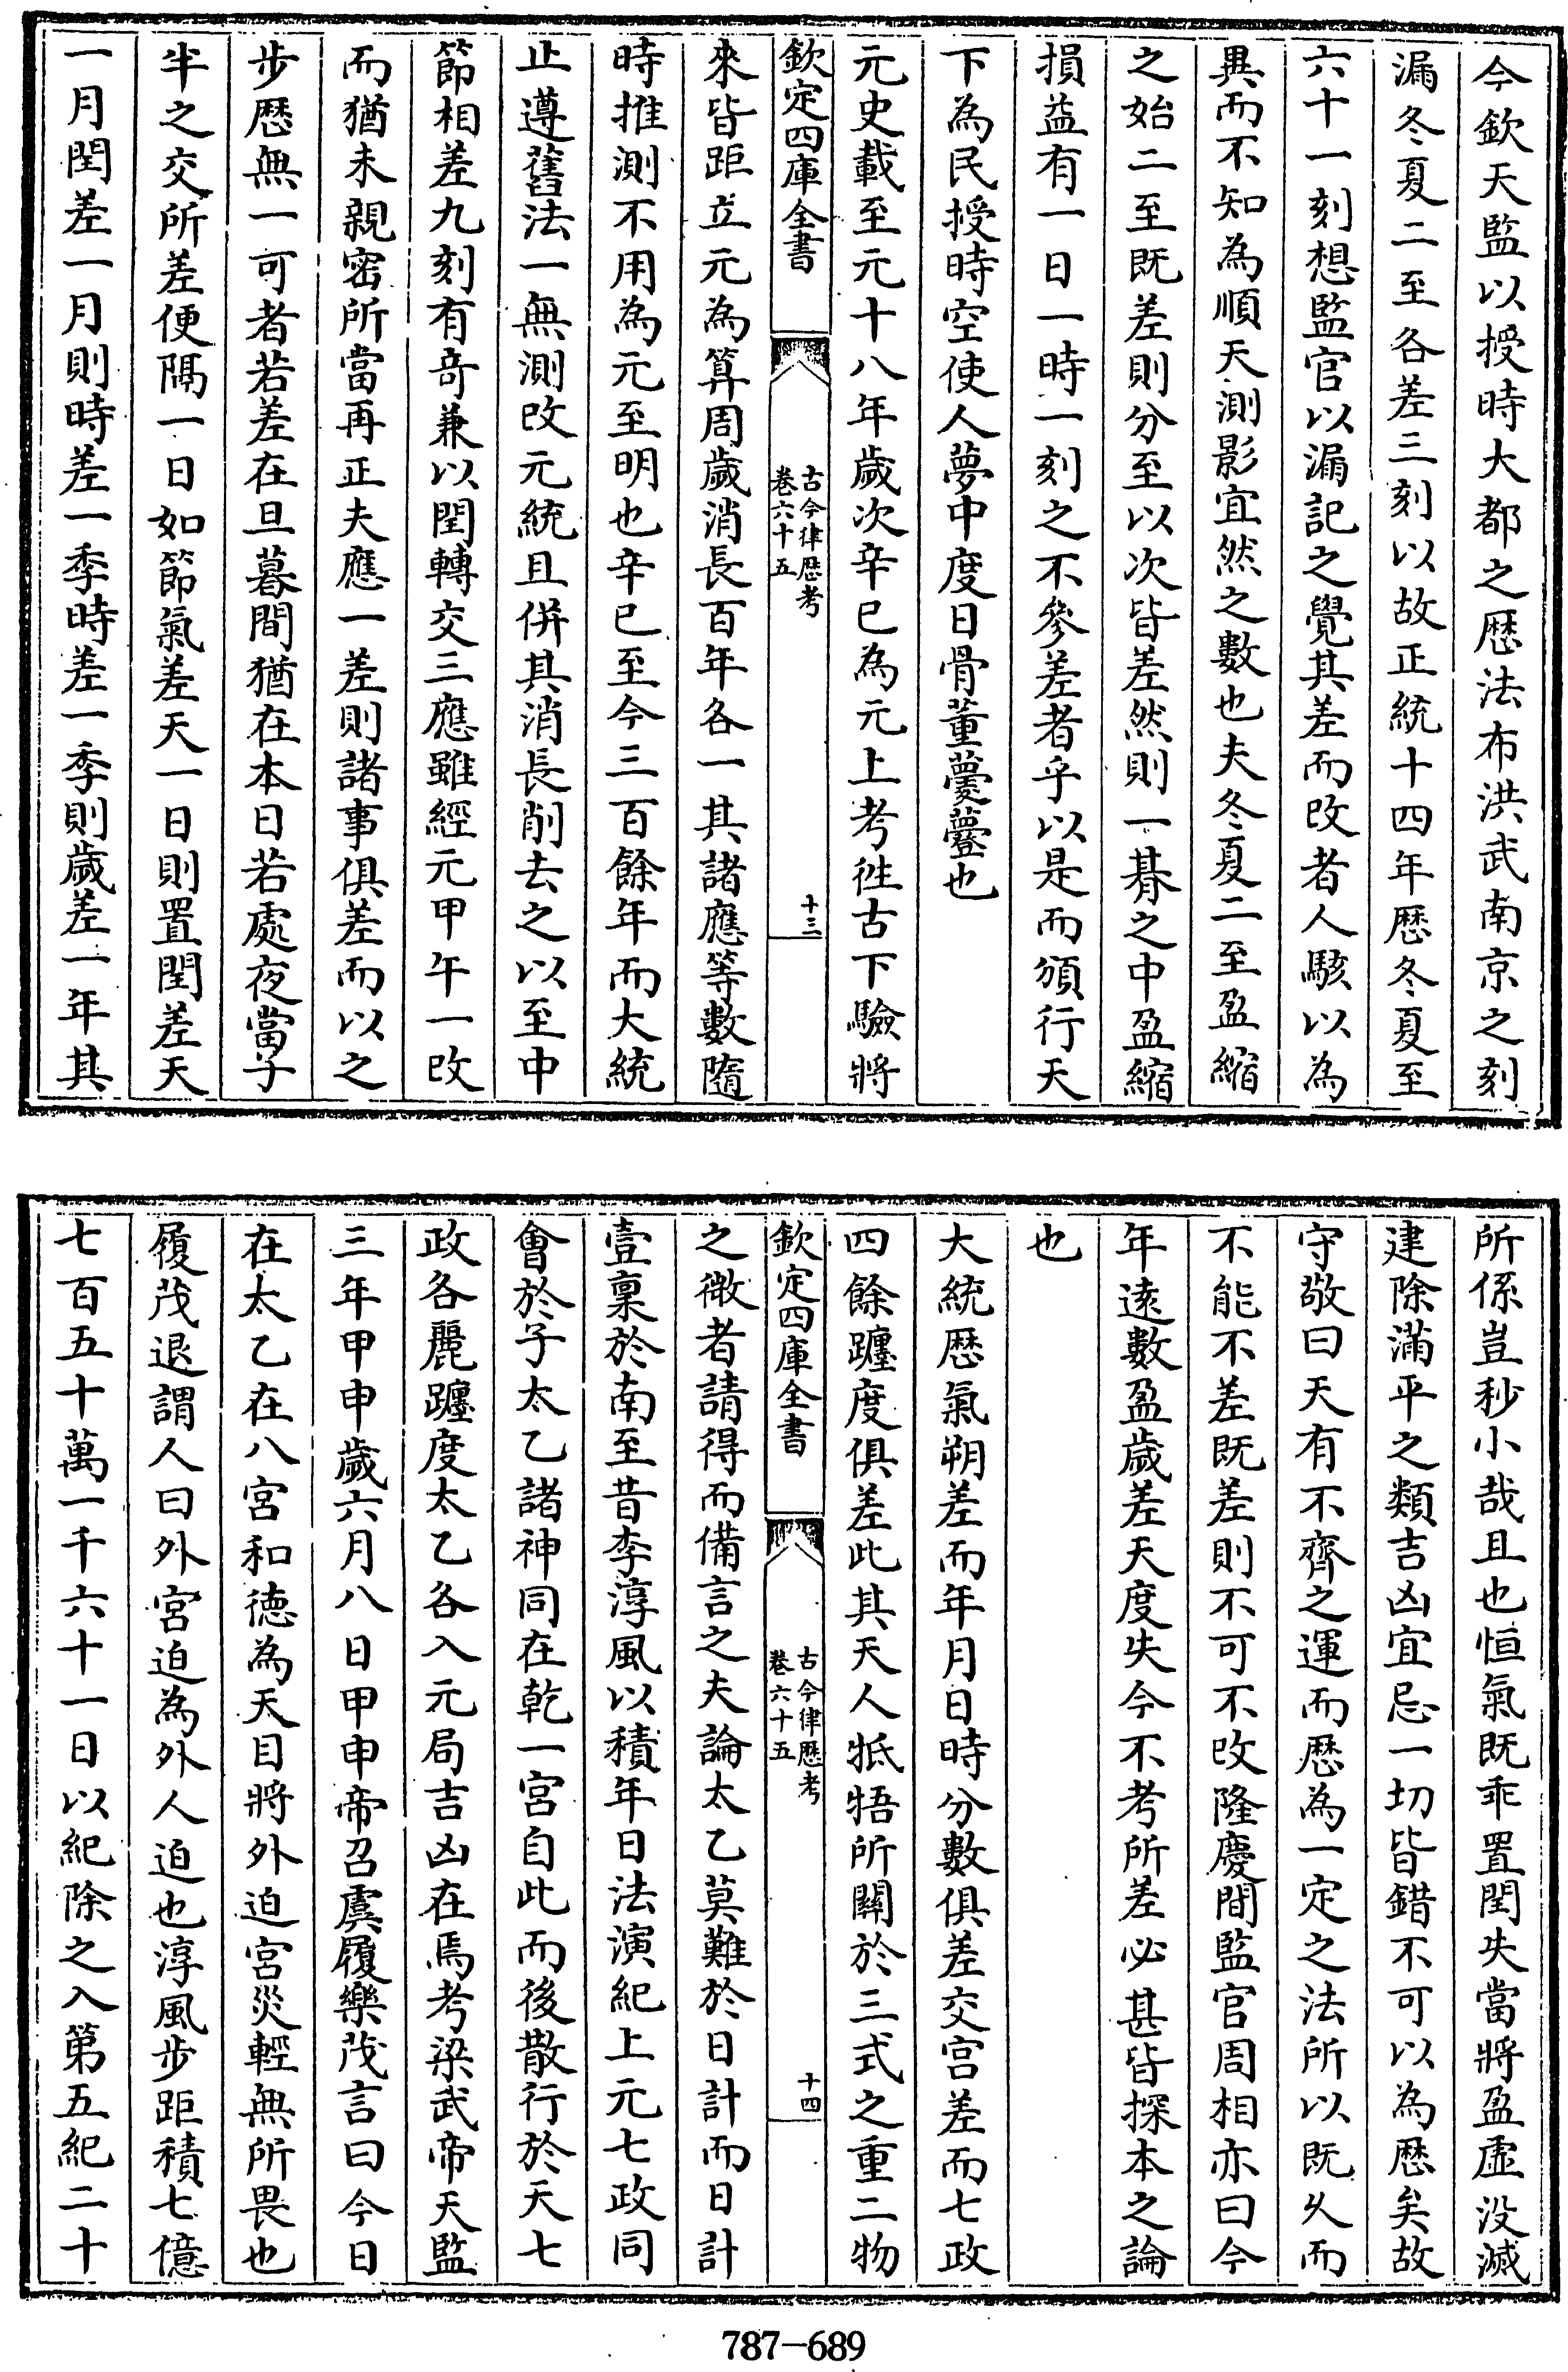 今欽天監以授時大都之歴法布洪武南京之刻
漏冬夏二至各差三刻以故正統十四年歴冬夏至
六十一刻想監官以漏記之覺其差而改者人駭以為
異而不知為順天測影宜然之數也夫冬夏二至盈縮
之始二至既差則分至以次皆差然則一朞之中盈縮
損益有一日一時一刻之不參差者乎以是而頒行天
下為民授時空使人夢中度日骨董薨薨也
元史載至元十八年歲次辛巳為元上考徃古下驗將
欽定四庫全書
古今律歴考
卷六十五
十三
來皆距立元為算周歲消長百年各一其諸應等數隨
時推測不用為元至明也辛巳至今三百餘年而大統
止遵舊法一無測改元統且併其消長削去之以至中
節相差九刻有竒兼以閏轉交三應雖經元甲午一改
而猶未親密所當再正夫應一差則諸事俱差而以之
步歴無一可者若差在旦暮間猶在本日若處夜當子
半之交所差便隔一日如節氣差天一日則置閏差天
一月閏差一月則時差一季時差一季則歲差一年其
所係豈秒小哉且也恒氣既乖置閏失當將盈虛没滅
建除滿平之類吉凶宜忌一切皆錯不可以為歴矣故
守敬曰天有不齊之運而歴為一定之法所以既久而
不能不差既差則不可不改隆慶間監官周相亦曰今
年遠數盈歲差天度失今不考所差必甚皆探本之論
也
大統歴氣朔差而年月日時分數俱差交宫差而七政
四餘躔度俱差此其天人牴牾所關於三式之重二物
欽定四庫全書
古今律歴考
卷六十五
十四
之微者請得而備言之夫論太乙莫難於日計而日計
壹稟於南至昔李淳風以積年日法演紀上元七政同
㑹於子太乙諸神同在乾一宫自此而後散行於天七
政各麗躔度太乙各入元局吉凶在焉考梁武帝天監
三年甲申歲六月八日甲申帝召虞履樂茂言曰今日
在太乙在八宫和徳為天目將外迫宫災輕無所畏也
履茂退謂人曰外宫迫為外人迫也淳風步距積七億
七百五十萬一千六十一日以紀除之入第五紀二十
787-689